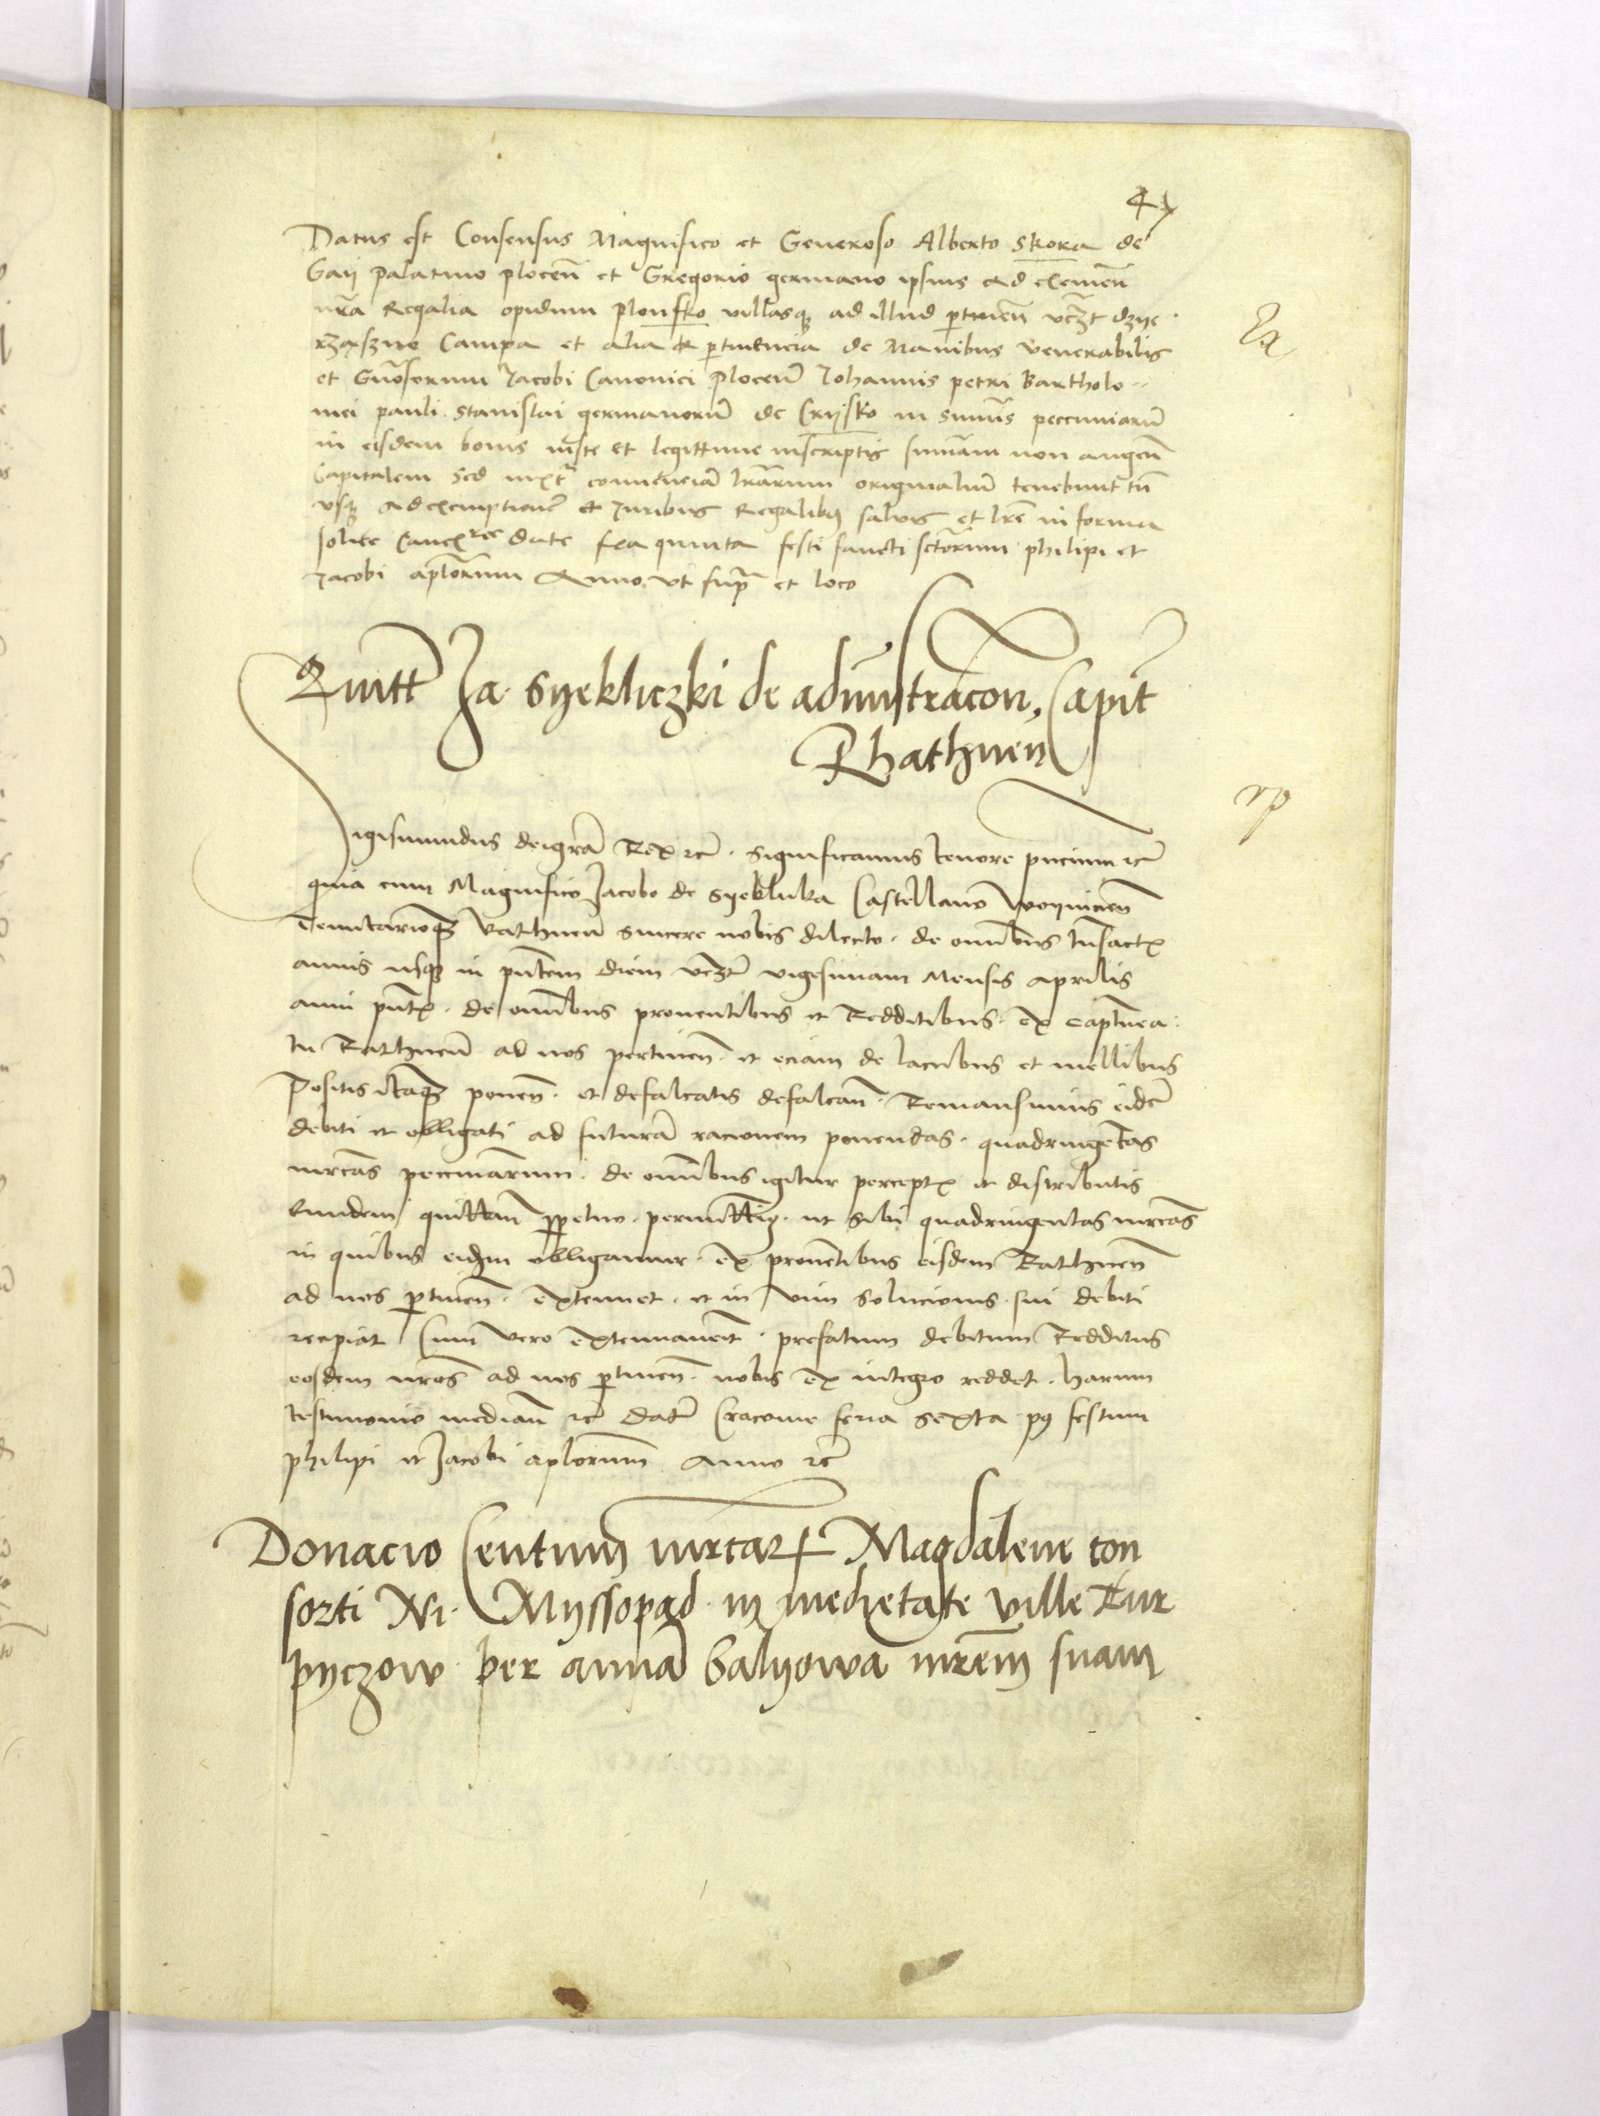 Datus est Consensus Magnifico et Generoso Alberto Skora de
Gaij Palatino plocen̄ et Gregorio germano ipsius ad eximen̄
nrā Regalia opidum Plonsko villasq ad illud ptinen̄ vcꝫt dzye
rzaszno Campa et alia ptinencia de Manibus venerabilis
et Gnōsorum Jacobi Canonici plocen̄ Johannis petri Bartholo
mei pauli Stanislai germanorū de Cryjsko in summis peccuniarū
in eisdem bonis iuste et legittime inscriptis summam non augen̄
Capitalem sed iuxt continenciā lrārum originaliū tenebunt
vsq ad exemptionē et Juribus Regalibus salvis et lrē in forma
solite Canc date fea quinta festi sancti sctōrum philipi et
Jacobi aplōrum Anno vt supᵃ et loco
Quitt Ja. Syekliczki de adminstracōn, Capit̄
Rhathnen
Sigismundus dei grā Rex rc̄. Significamus tenore pncium rc̄
quia cum Magnifico Jacobo de Syekluka Castellano Woynicien̄
Tenutarioqꝫ Rathnen̄ sincere nobis dilecto. de omībus trnsactꝭ
annis usq in pn̄tem diem vcꝫt vigesimam Mensis Aprilis
anni pn̄tꝭ. de omībus proventibus et Redditibus. ex capitanea
tu Rathnen̄ ad nos pertinen̄. et eciam de lacubus et mellibus
Positis itaqꝫ ponen̄. et defalcatis defalcan̄. Remansimus eidē
debiti et obligati ad futurā racionem ponendas. quadringētas
mrcās peccniārum. de omībus igitur perceptꝭ et distributis
Eundem quittan̄ ppetuo. permitting. ut sibi quadringentas mrcās
in quibus eidem obligamur. ex provētibus eisdem Rathnen̄
ad nos ptinen̄. extenuet. et in vim solucionis sui debiti
recipiat Cum vero extenuaverit. prefatum debitum Redditus
eosdem nros ad nos ptinen̄. nobis ex integro reddet. harum
testimonio median̄ rc̄ Datū Cracovie feria sexta pꝰ festum
philipi et Jacobi aplorum̄ Anno rc̄
Donacio Centum mrcarꝝ Magdalene con
sorti Ni. Myssopad in medietate ville Kur
pyczow per annā Balyowa mrēm suam